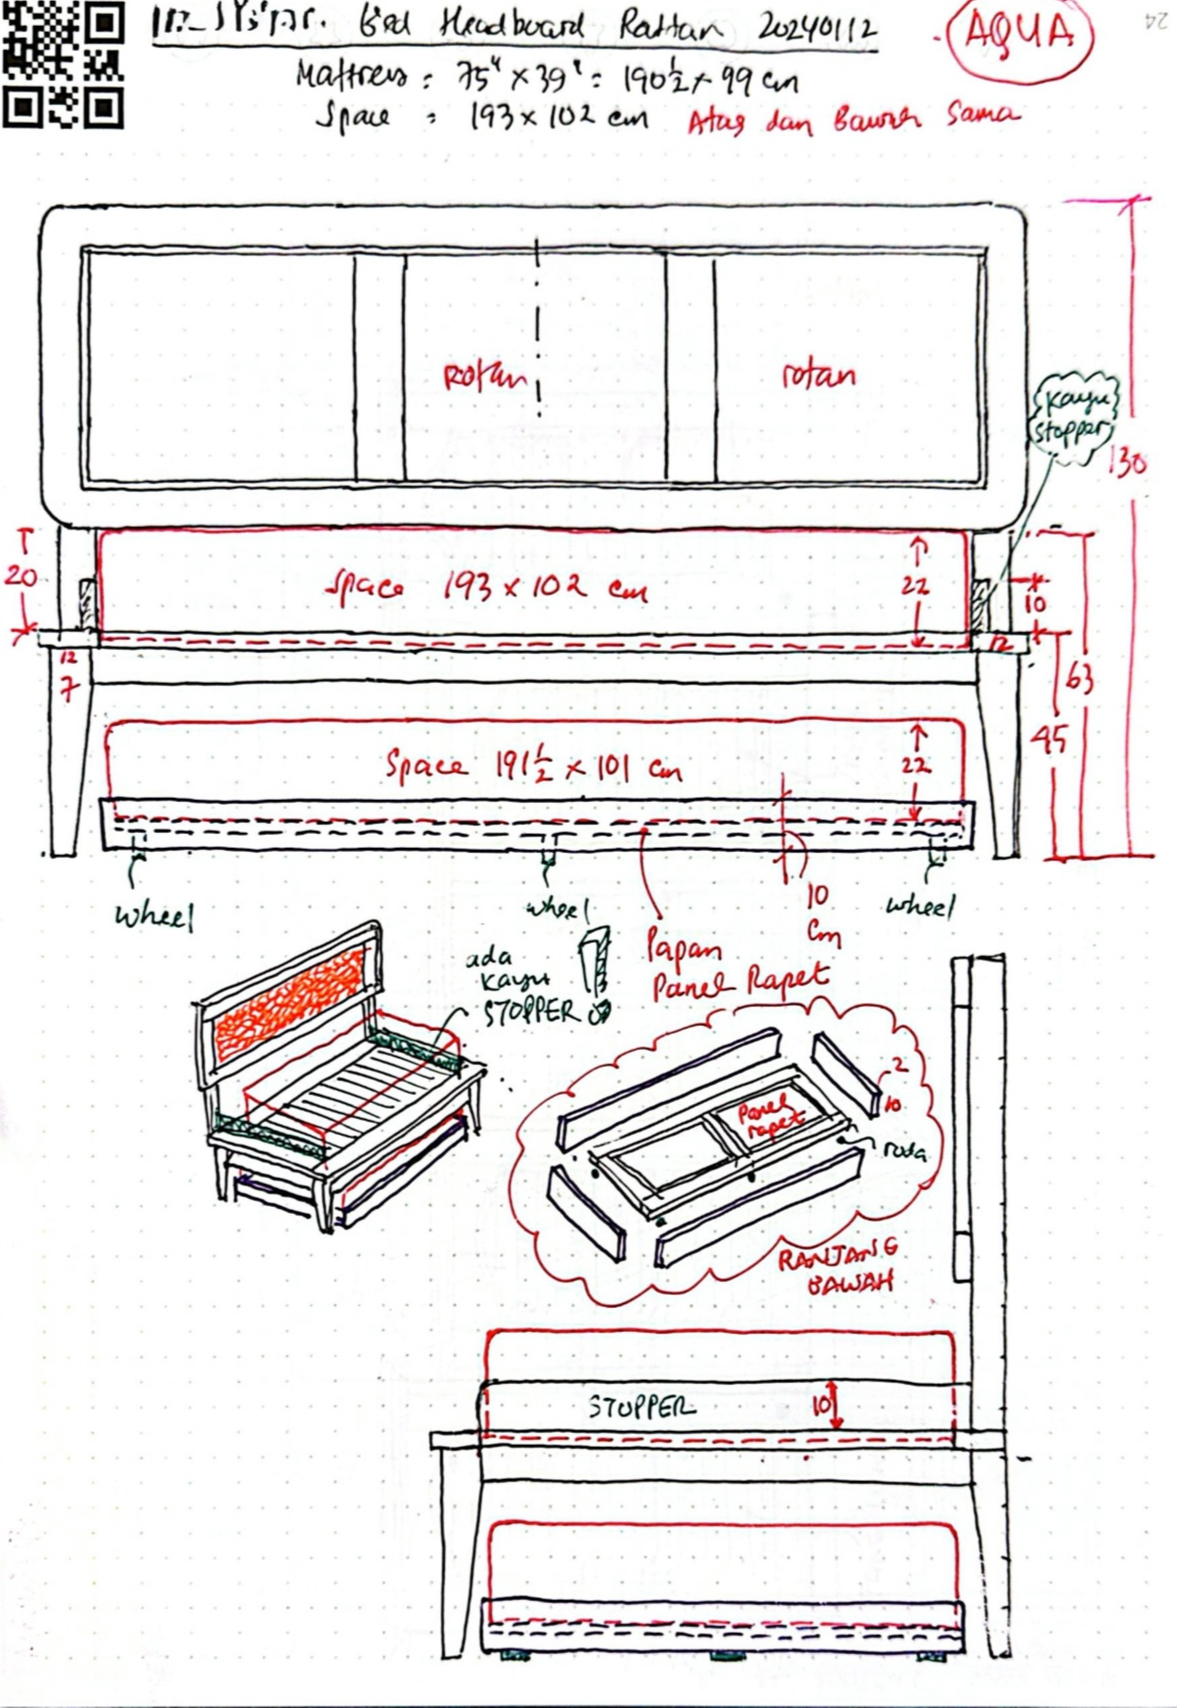 Bed Headboard Rattan 20240112
AQUA
24
Mattress = 75" x 39" = 190½ x 99 cm
Space = 193 x 102 cm Atas dan Bawah Sama
Rotan
rotan
Kayu
stopper
130
20
Space 193 x 102 cm
22
10
12
12
7
63
45
Space 191½ x 101 cm
22
wheel
wheel
10
cm
wheel
ada
kayu
STOPPER
Papan
Panel Rapet
2
10
Panel
rapet
roda
RANJANG
BAWAH
STOPPER
10